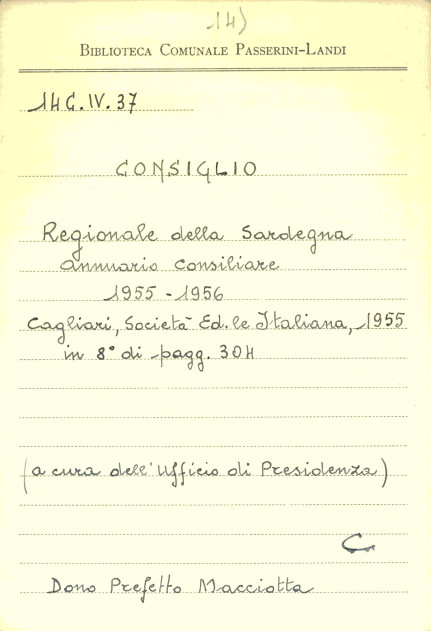 14)
BIBLIOTECA COMUNALE PASSERINI-LANDI
14C.IV.37
CONSIGLIO
Regionale della Sardegna
annuario consiliare
1955-1956
Cagliari, Società Ed.le Italiana, 1955
in 8° di pagg. 304
(a cura dell'Ufficio di Presidenza)
C
Dono Prefetto Macciotta